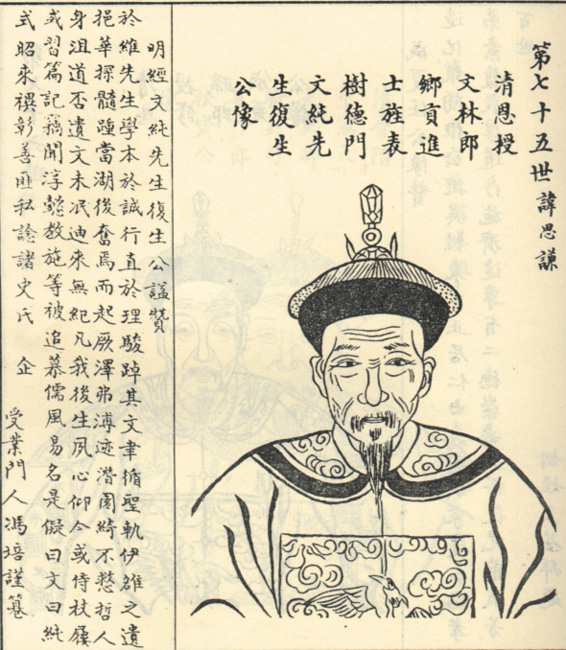 第七十五世諱思謙
清恩授
文林郎
鄉貢進
士旌表
樹德門
文純先
生復生
公像
明經文純先生復生公諡贊
於維先生學本於誠行直於理駿踔其文聿循聖軌伊雒之遺
挹華探髓踵當湖後奮焉而起厥澤弗溥迹潛園綺不憖哲人
身沮道否遺文未泯迪來無紀凡我後生夙心仰今或侍杖屨
或習篇記竊聞淳懿教施等被追慕儒風易名是儗曰文曰純
式昭來禩彰善匪私諗諸史氏 企
受業門人馮培謹篹